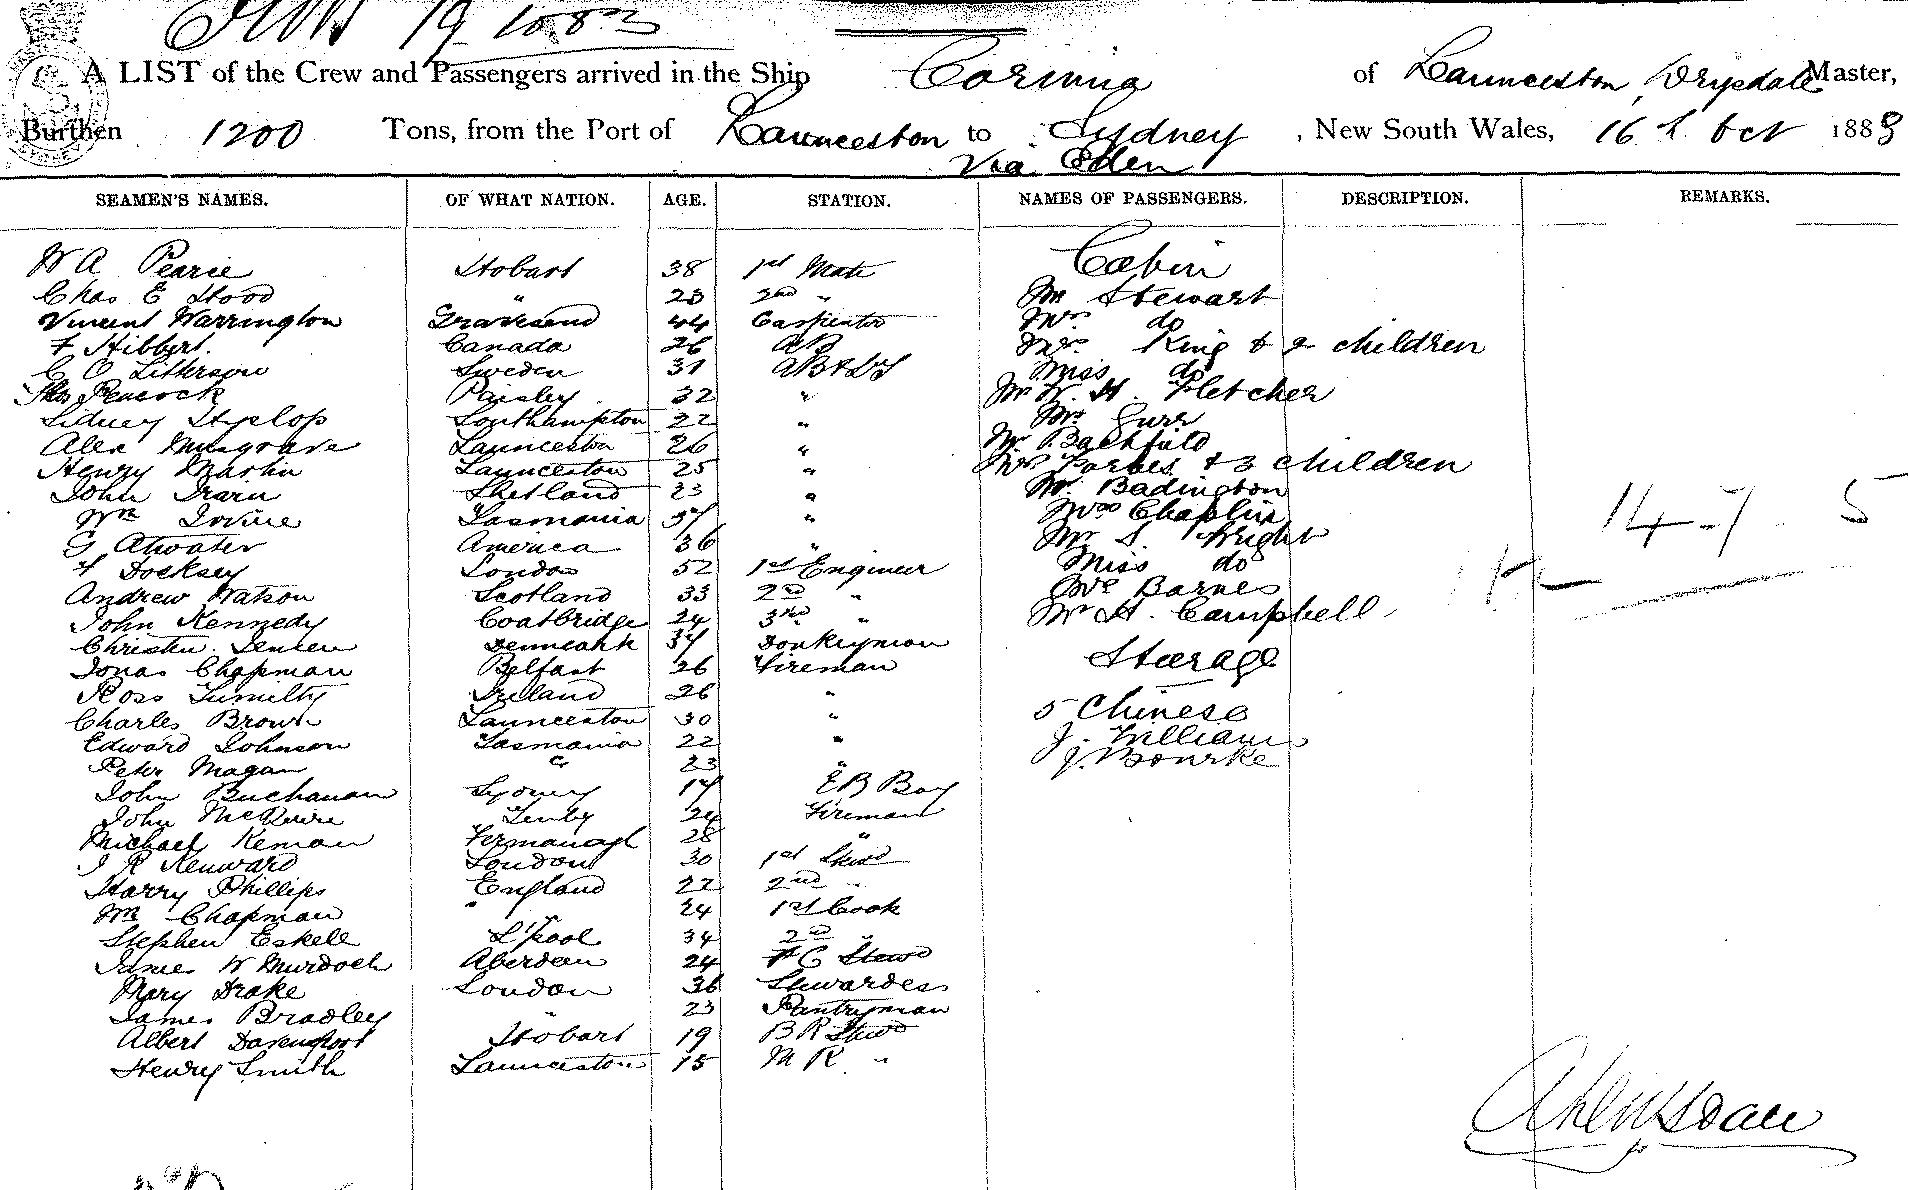 A LIST of the Crew and Passengers arrived in the Ship Corinna of Launceston, Drysdale Master,
Burthen 1200 Tons, from the Port of Launceston to Sydney, New South Wales, 16th Oct 1883
Via Eden
SEAMEN'S NAMES. OF WHAT NATION. AGE. STATION. NAMES OF PASSENGERS. DESCRIPTION. REMARKS.
W A Pearie Hobart 38 1st Mate Cabin
Chas E Hood " 23 2nd " Mr Stewart
Vincent Warrington Gravesend 44 Carpenter Mrs do
F Hibbert. Canada 26 AB Mrs. King & 2 children
C O Sweden 31 AB & LT Miss do
Thos Peacock Paisley 32 " Mr W. H. Fletcher
Sidney Hyslop Southampton 22 " Mr Gurr
Alex Musgrave Launceston 26 " Mr
Henry Martin Launceston 25 " Mrs Forbes & 3 children
John Shetland 23 " Mr. Badington
Wm Irvine Tasmania 37 " Mrs Chaplin
G Atwater America 36 " Mr S. Wright
F Docksey London 52 1st Engineer Miss do
Andrew Watson Scotland 33 2nd " Mr Barnes
John Kennedy Coatbridge 24 3rd " Mr H. Campbell
Christen Jensen Denmark 37 Donkeyman Steerage
Jonas Chapman Belfast 26 Fireman
Ross Tumilty Ireland 26 "
Charles Brown Launceston 30 " 5 Chinese
Edward Johnson Tasmania 22 " J. Williams
Peter Magan " 23 " J. Bourke
John Buchanan Sydney 17 E B Boy
John McGuire Tenby 24 Fireman
Michael Kernan Fermanagh 28 "
J R Kenward London 30 1st Stewd
Harry Phillips England 22 2nd "
Wm Chapman " 24 1st Cook
Stephen Eskell L'pool 34 2nd "
James W Murdoch Aberdeen 24 F C Stewd
Mary Drake London 36 Stewardess
James Bradley " 23 Pantryman
Albert Davenport Hobart 19 B R Stewd
Henry Smith Launceston 15 M R "
14-7 5